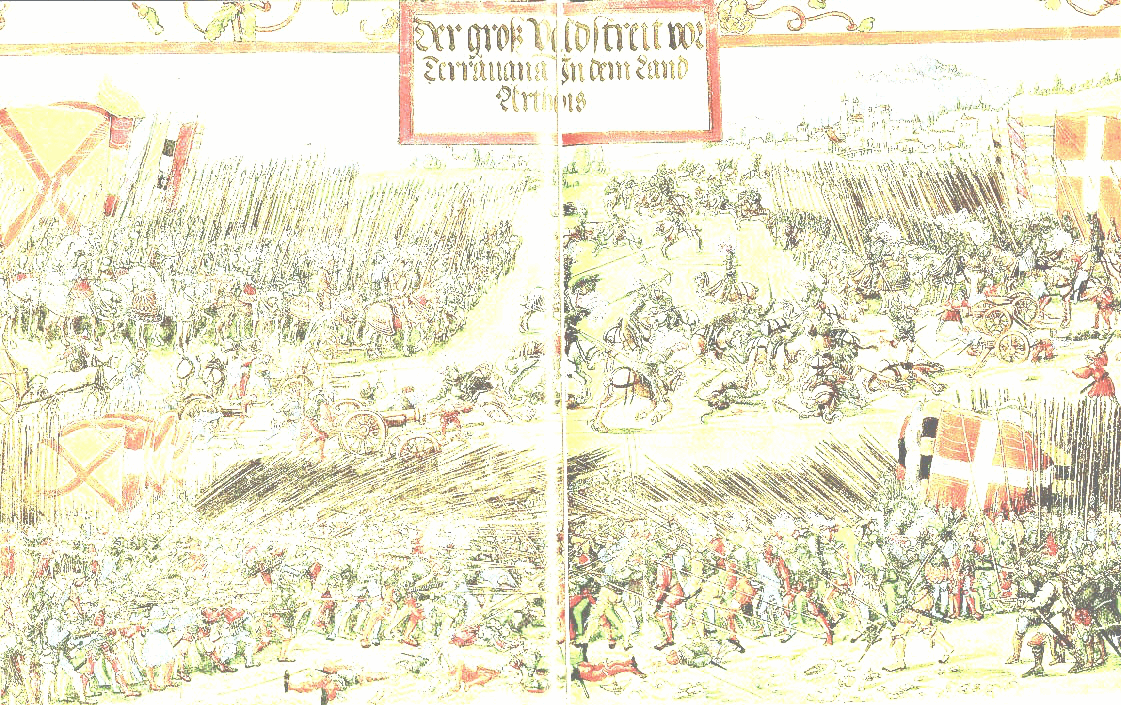 Der groß Veldstreit vor
Terräuana In dem Land
Arthois